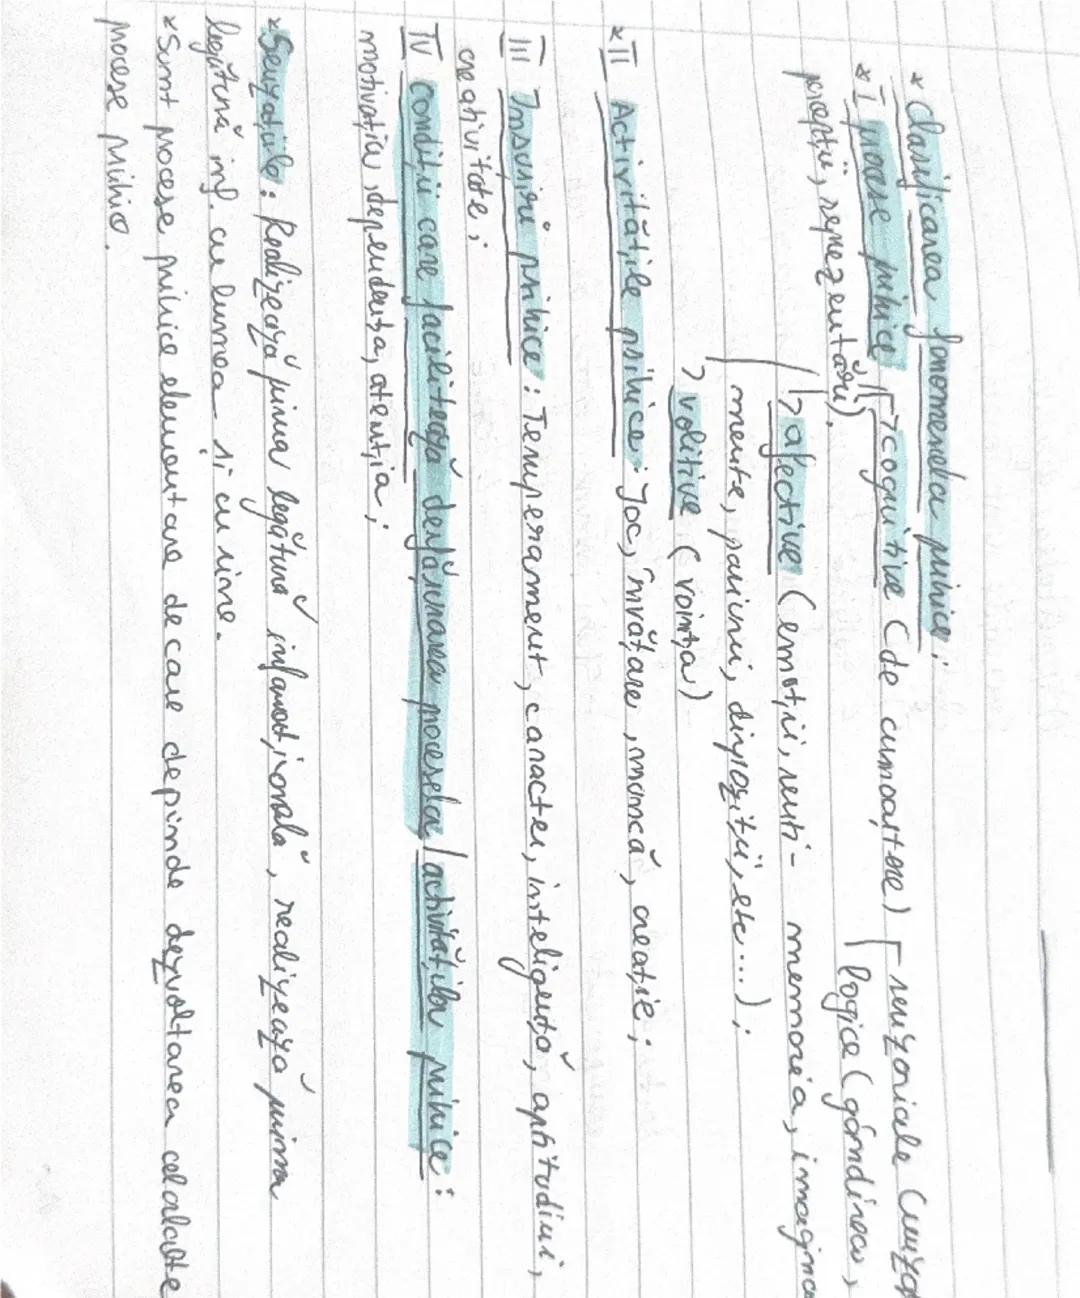 * Clasificarea fenomenelor psihice:
* I procese psihice → cognitive (de cunoaștere) senzoriale (senzații
percepții, reprezentări). logice (gândirea,
memoria, imaginația
→ afective (emoții, senti-
mente, pasiuni, dispoziții, etc...);
→ volitive (voința)
* II Activitățile psihice: Joc, învățare, muncă, creație;
III Însușiri psihice: Temperament, caracter, inteligență, aptitudini,
creativitate;
IV Condiții care facilitează desfășurarea proceselor/activităților psihice:
motivația, dependența, atenția;
* Senzațiile: Realizează prima legătură informațională, realizează prima
legătură inf cu lumea și cu sine.
* Sunt procese psihice elementare de care depinde dezvoltarea celorlalte
procese psihice.